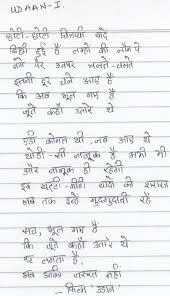 UDAAN-I.
छोटी-छोटी छितरायी यादें
बिछी हुई हैं लम्हों की लॉन पे
नंगे पैर उनपर चलते-चलते
इतनी दूर चले आए हैं
कि अब भूल गए हैं
जूते कहाँ उतारे थे
एड़ी कोमल थी, जब आए थे
थोड़ी-सी नाज़ुक है अभी भी
और नाज़ुक ही रहेगी
इन खट्टी-मीठी यादों की शरारत
जब तक इन्हें गुदगुदाती रहे
सच, भूल गए हैं
कि जूते कहाँ उतारे थे
पर लगता है,
अब उनकी ज़रूरत नहीं
- फिल्म उड़ान